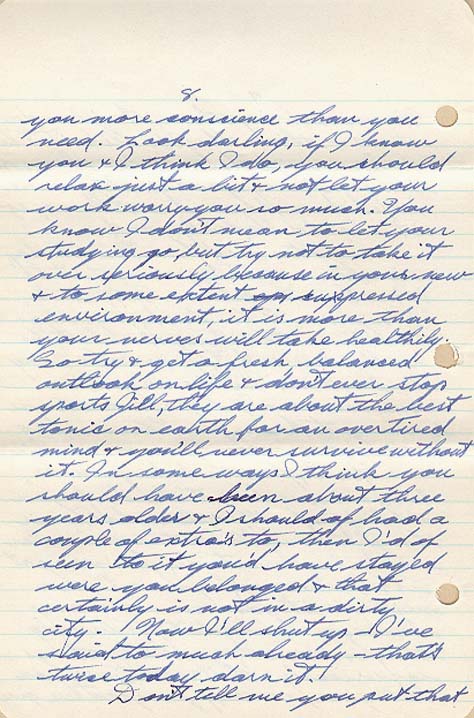 8.
you more conscience than you
need. Look darling, if I know
you & I think I do, you should
relax just a bit & not let your
work worry you so much. You
know I don't mean to let your
studying go, but try not to take it
over seriously because in your new
& to some extent suppressed
environment, it is more than
your nerves will take healthily.
So try & get a fresh, balanced
outlook on life & don't ever stop
sports Jill, they are about the best
tonic on earth for an overtired
mind & you'll never survive without
it. In some ways I think you
should have been about three
years older & I should of had a
couple of extra's to, then I'd of
seen to it you'd have stayed
were you belonged & that
certainly is not in a dirty
city. Now I'll shut up - I've
said to much already - that's
twice today darn it!
Don't tell me you put that